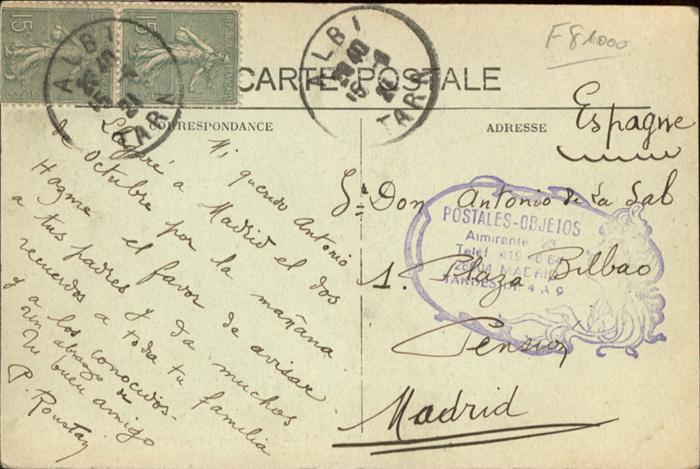 F 8 1000
CARTE POSTALE
CORRESPONDANCE
ADRESSE
15c
15c
REPUBLIQUE FRANÇAISE
ALBI
TARN
ALBI
TARN
Mi querido Antonio
Llegaré a Madrid el dos
de Octubre por la mañana.
Hagme el favor de avisar
a tus padres y da muchos
recuerdos a toda tu familia
y a los conocidos.
Un abrazo de
tu buen amigo
P. Roustan
Espagne
Sr Don Antonio de La Sal
1. Plaza Bilbao
Pension
Madrid
POSTALES-OBJETOS
Almirante, 23
Teléf. 419 46 64
28004 MADRID
TARDES DE 4 A 9